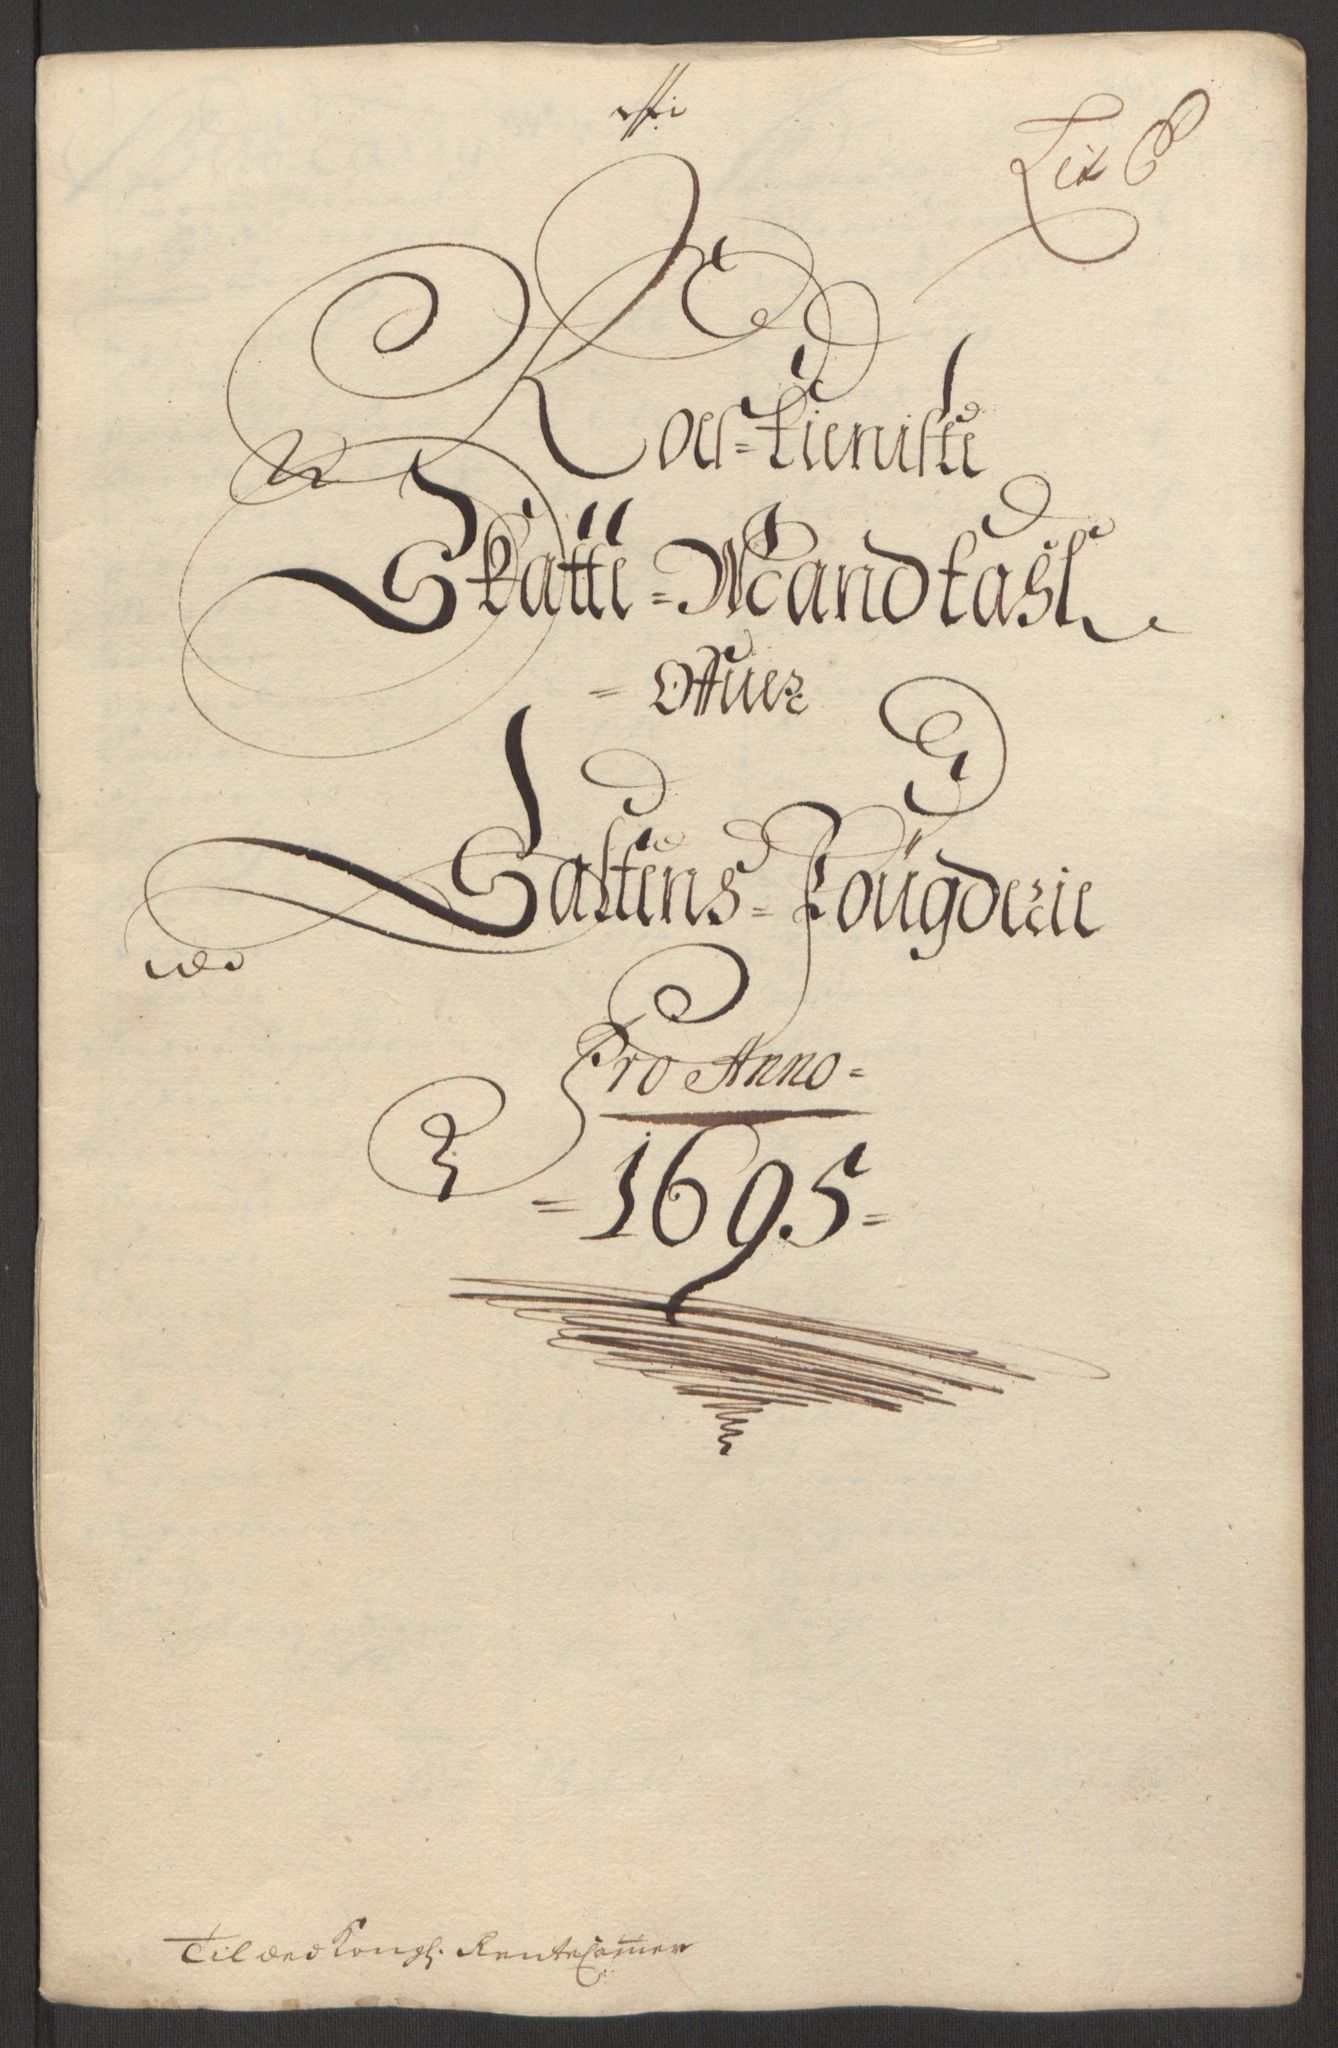 Lit C
Ros-tieniste
Skatte=Mandtall
= Offuer
Saltens=Fougderie
Pro Anno=
=1695=
Til ded Kongl. RenteCammer